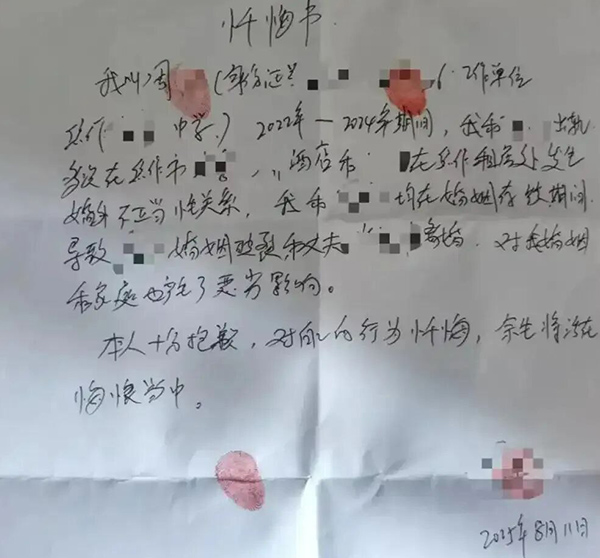 忏悔书
我叫周 (身份证号 工作单位
焦作 中学) 2022年—2024年期间,我和 出轨
多次在焦作市 酒店和 在焦作租房处发生
婚外不正当性关系,我和 均在婚姻存续期间
导致 婚姻破裂和丈夫 离婚.对我婚姻
和家庭也造成了恶劣影响。
本人十分抱歉,对自己的行为忏悔,余生将活在
悔恨当中。
2025年8月11日